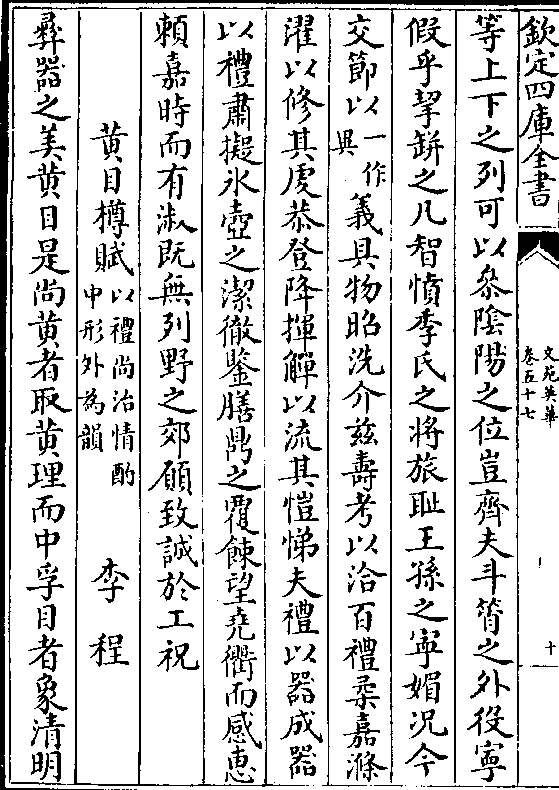 欽定四庫全書
文苑英華
卷五十七
十
等上下之列可以叅陰陽之位豈齊夫斗筲之外役寧
假乎挈缾之凡智憤季氏之將旅耻王孫之寧媚況今
交節以一作異義具物昭洗介兹壽考以洽百禮柔嘉滌
濯以修其虔恭登降揮觶以流其愷悌夫禮以器成器
以禮肅擬氷壺之潔徹鑒膳鼎之覆餗望堯衢而感惠
頼嘉時而有淑既無列野之郊願致誠於工祝
黄目樽賦以禮尚治情酌中形外為韻 李程
彛器之美黄目是尚黄者取黄理而中孚目者象清明